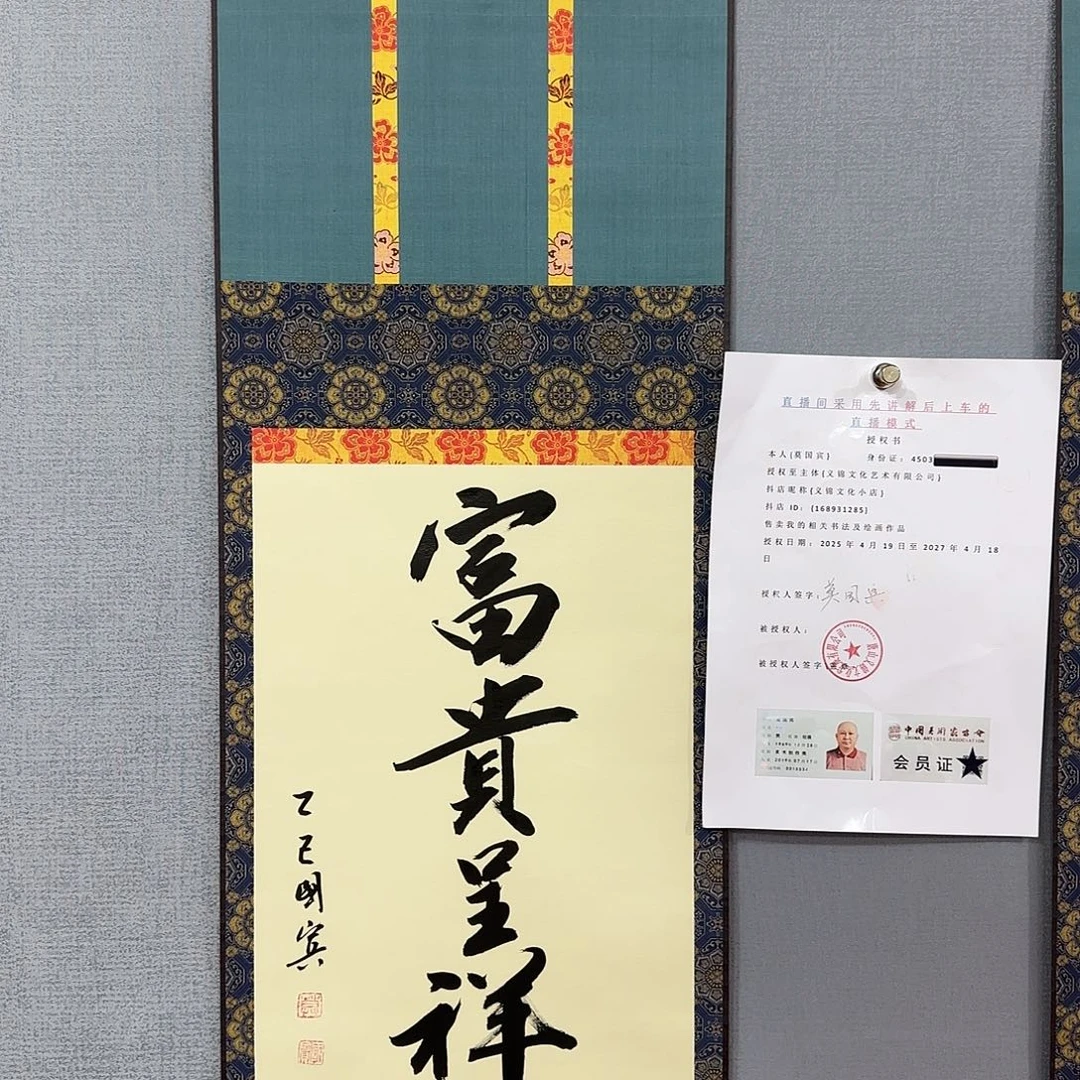 富貴呈祥
乙巳國賓
直播间采用先讲解后上车的
直播模式
授权书
本人(莫国宾) 身份证: 4503
授权至主体(义锦文化艺术有限公司)
抖店昵称(义锦文化小店)
抖店 ID: (168931285)
售卖我的相关书法及绘画作品
授权日期: 2025 年 4 月 19 日至 2027 年 4 月 18
日
授权人签字: 莫国宾
被授权人:
被授权人签字
中国美术家协会
CHINA ARTISTS ASSOCIATION
会员证